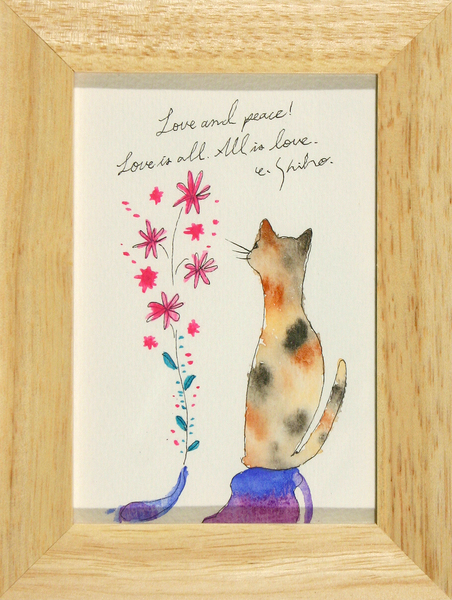 Love and peace!
Love is all. All is love.
e. Shiho.